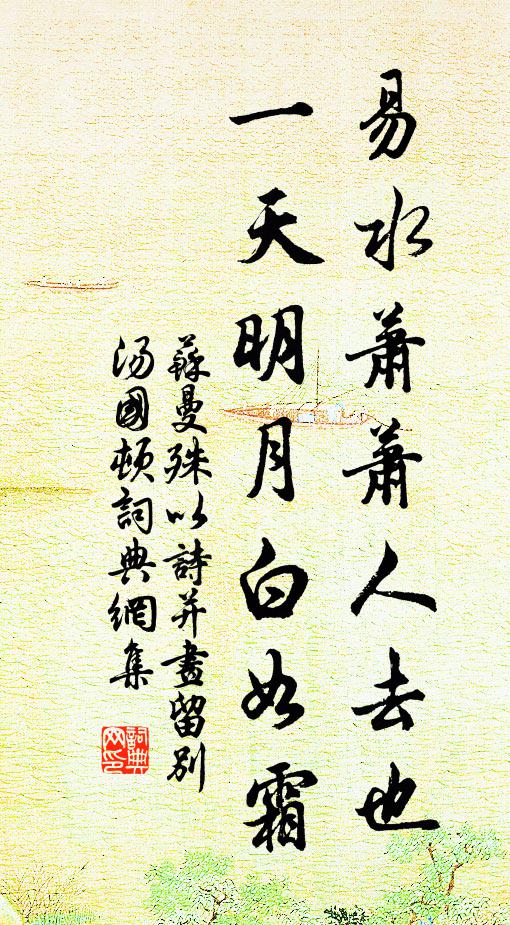 易水蕭蕭人去也
一天明月白如霜
蘇曼殊以詩并畫留別
湯國頓詞典網集
詞典网印